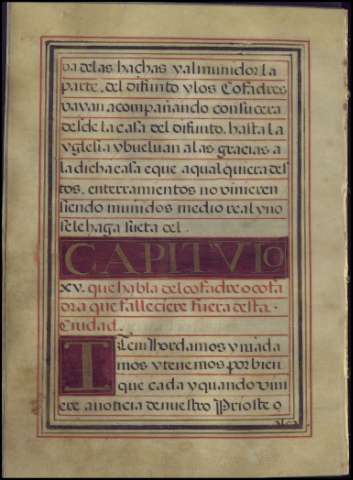 va de las hachas y al munidor la
parte, del difunto y los Cofadres
vayan acompañando con su cera
desde la casa del difunto, hasta la
yglesia y bueluan a las gracias a
la dicha casa e que a qual quiera des
tos, enterramientos no vinieren
siendo muñidos medio real y no
se le haga suelta del.
CAPITVLO
xv. que habla del cofadre o cofa
dra que falleciere fuera desta.
Ciudad.
Item Hordamos y māda
mos y tenemos por bien
que cada y quando vini
ere a noticia de nuestro Prioste o